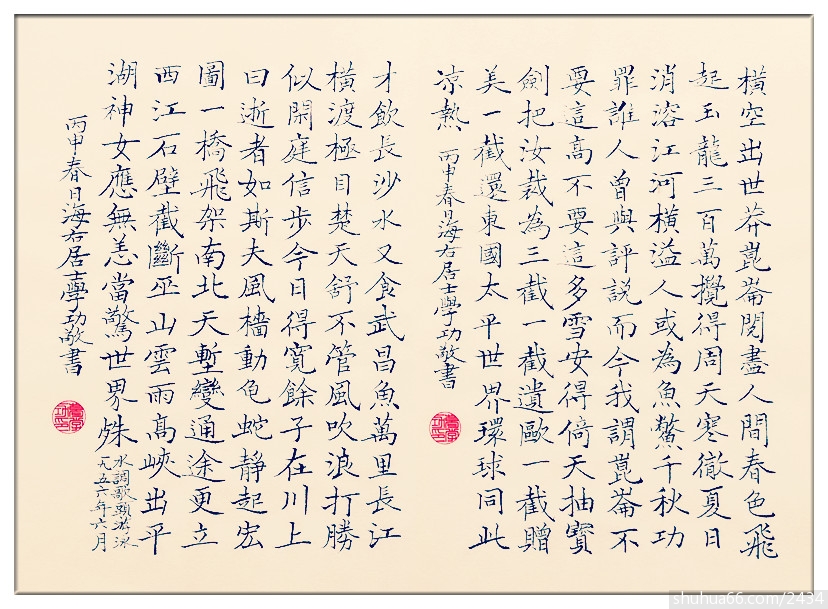 橫空出世莽崑崙閱盡人間春色飛
起玉龍三百萬攪得周天寒徹夏日
消溶江河橫溢人或為魚鱉千秋功
罪誰人曾與評說而今我謂崑崙不
要這高不要這多雪安得倚天抽寶
劍把汝裁為三截一截遺歐一截贈
美一截還東國太平世界環球同此
凉熱
丙申春日海右居士學功敬書
才飲長沙水又食武昌魚萬里長江
橫渡極目楚天舒不管風吹浪打勝
似閑庭信步今日得寬餘子在川上
曰逝者如斯夫風檣動龟蛇靜起宏
圖一橋飛架南北天塹變通途更立
西江石壁截斷巫山雲雨高峽出平
湖神女應無恙當驚世界殊
水調歌頭游泳
一九五六年六月
丙申春日海右居士學功敬書
shuhua66.com/2434